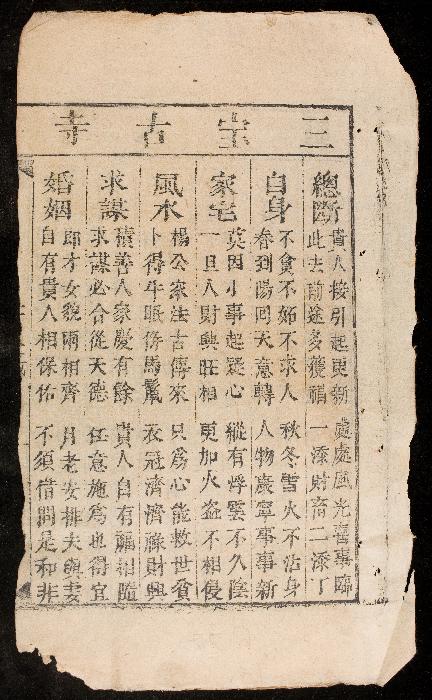 三宝古寺
總斷
貴人接引起更新 處處風光喜事臨
此去前途多獲福 一添財畜二添丁
自身
不貪不妬不求人 秋冬雪火不沾身
春到陽回天意轉 人物康寧事事新
家宅
莫因小事起疑心 縱有浮雲不久陰
一旦人財興旺相 更加火盗不相侵
風水
楊公家法古傳來 只為心能救世貧
卜得牛眠傍馬鬣 衣冠濟濟祿財興
求謀
積善人家慶有餘 貴人自有福相隨
求謀必合從天德 任意施為也得宜
婚姻
郎才女貌兩相齊 月老安排夫與妻
自有貴人相保佑 不須借問是和非